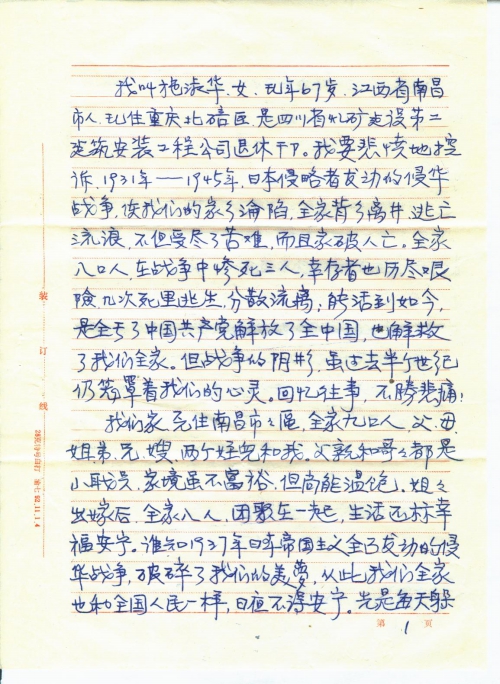 我叫施淑华、女、现年67岁、江西省南昌
市人、现住重庆北碚区是四川省煤矿建设第二
建筑安装工程公司退休干部。我要悲愤地控
诉，1931年——1945年，日本侵略者发动的侵华
战争，使我们的家乡淪陷，全家背乡离井，逃亡
流浪，不但受尽了苦难，而且家破人亡。全家
八口人，在战争中惨死三人，幸存者也历尽艰
險几次死里逃生，分散流離；能活到如今，
是全亏了中国共产党解放了全中国，也解救
了我们全家。但战争的阴影，虽过去半个世纪
仍笼罩着我们的心灵。回忆往事，不勝悲痛！
我们家先住南昌市区，全家九口人，父、母、
姐、弟、兄、嫂、两个侄儿和我。父親和哥々都是
小職员，家境虽不富裕，但尚能温饱。姐々
出嫁后，全家八人，团聚在一起，生活还称幸
福安宁。谁知1937年日本帝国主义全面发动的侵
华战争，破碎了我们的美夢，从此，我们全家
也和全国人民一样，日夜不得安宁。光是每天躲
第 1 页
装
订
线